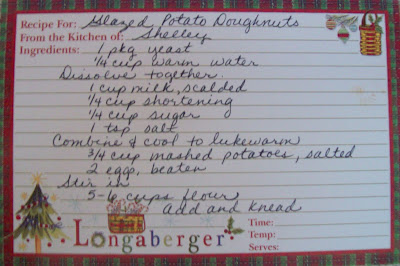 Recipe For: Glazed Potato Doughnuts
From the Kitchen of: Shelley
Ingredients:
1 pkg yeast
1/4 cup warm water
Dissolve together.
1 cup milk, scalded
1/4 cup shortening
1/4 cup sugar
1 tsp salt
Combine & cool to lukewarm
3/4 cup mashed potatoes, salted
2 eggs, beaten
Stir in
5-6 cups flour
add and knead
Time:
Temp:
Serves:
Longaberger